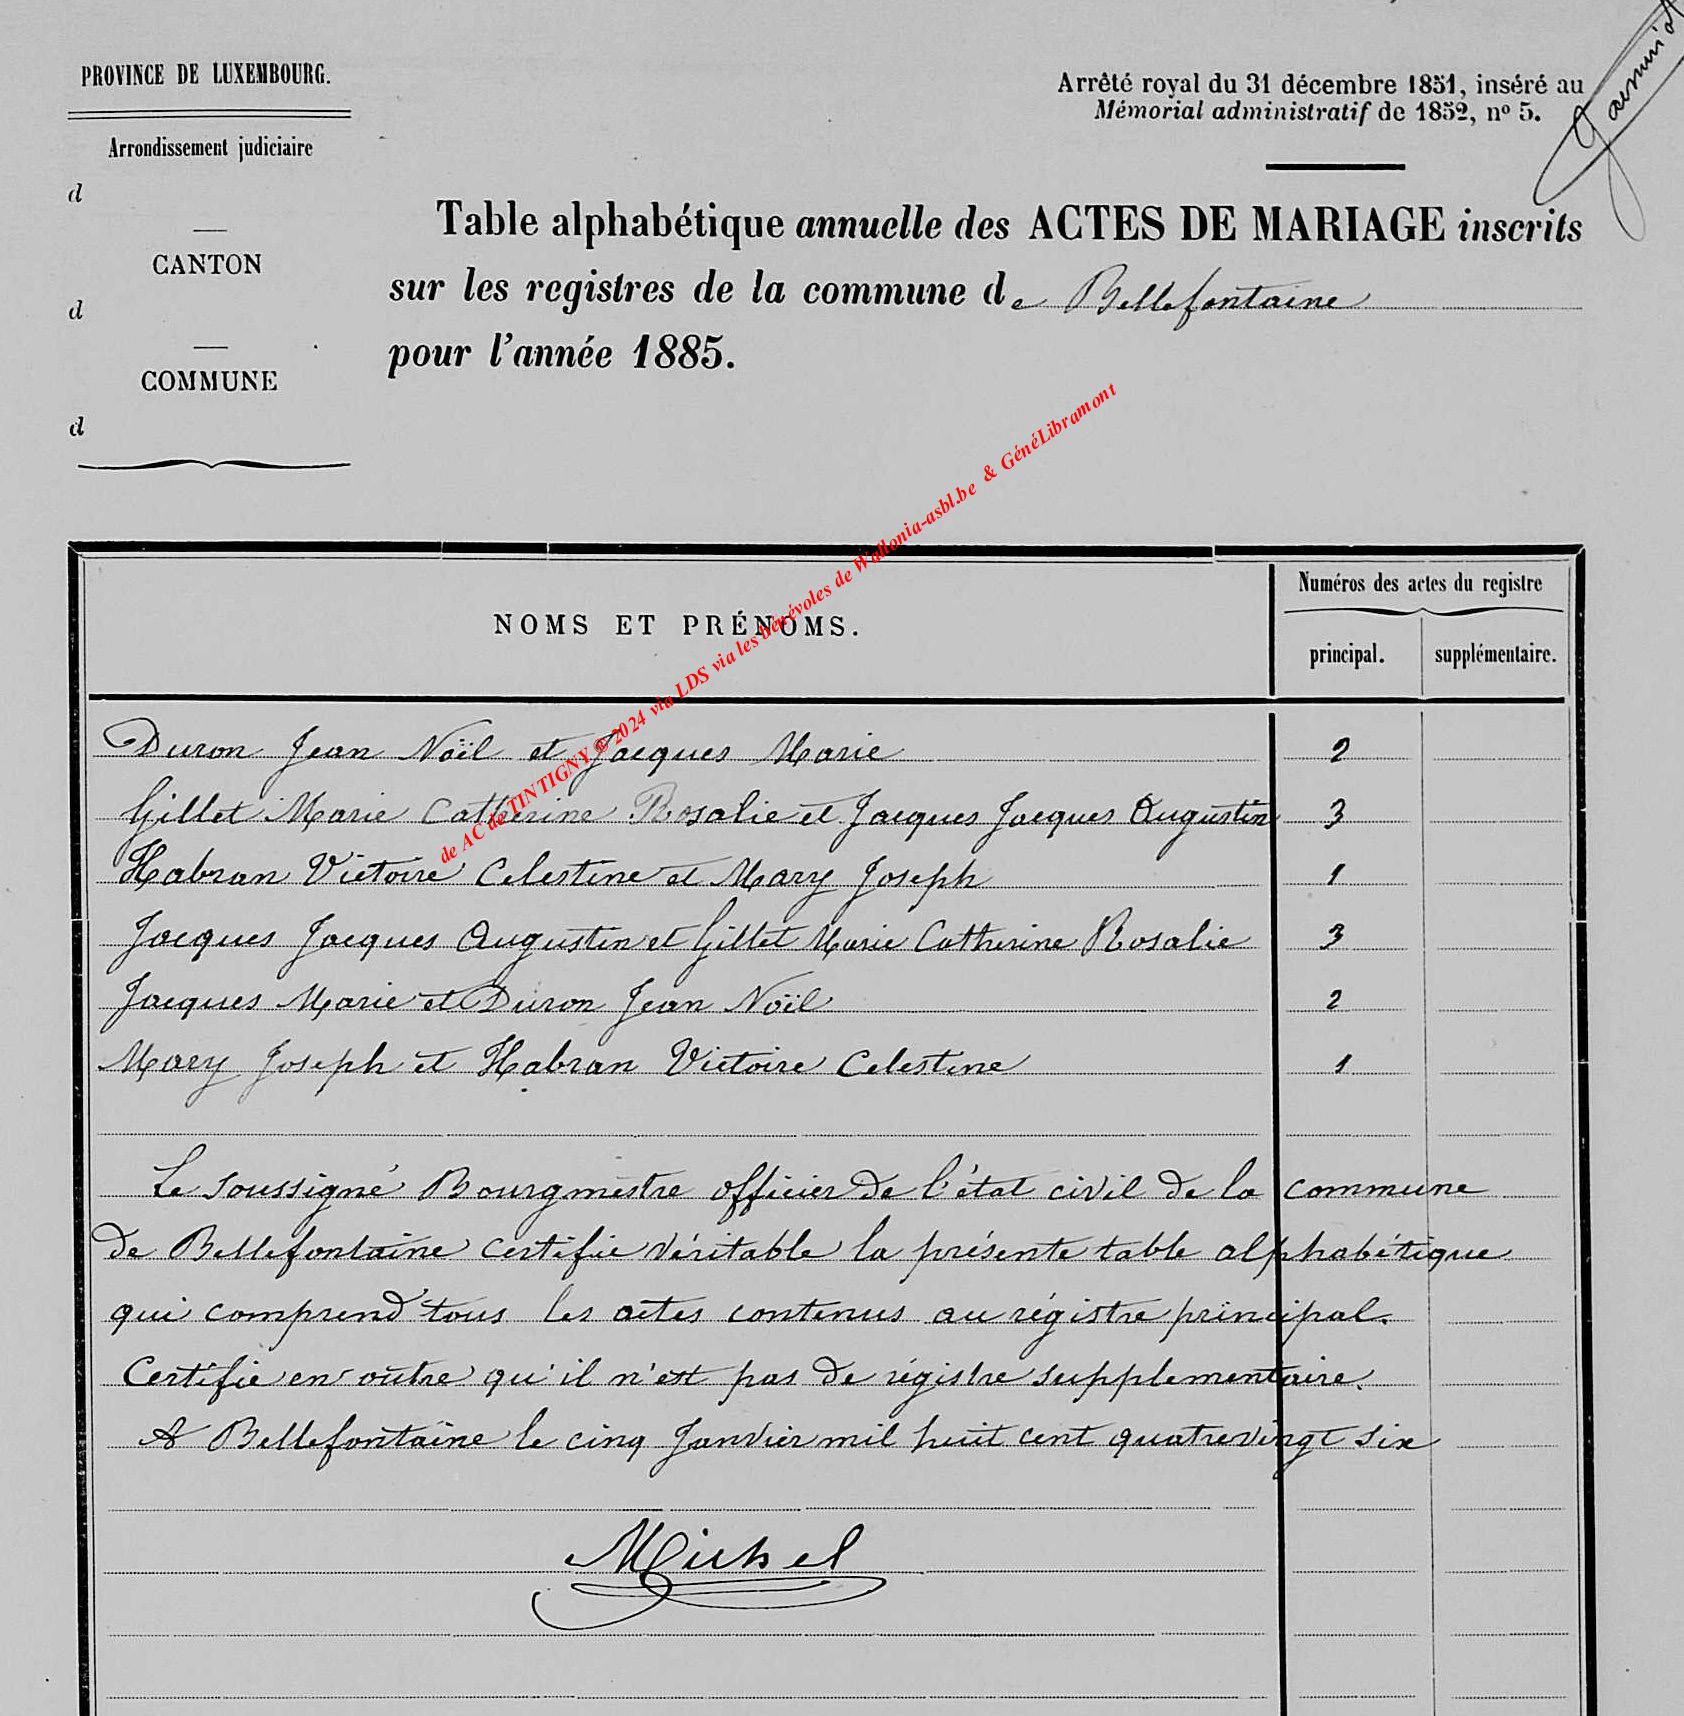 PROVINCE DE LUXEMBOURG.
Arrondissement judiciaire
d
CANTON
d
COMMUNE
d
Arrêté royal du 31 décembre 1851, inséré au
Mémorial administratif de 1852, nº 5.
Table alphabétique annuelle des ACTES DE MARIAGE inscrits
sur les registres de la commune de Bellefontaine
pour l'année 1885.
de AC de TINTIGNY © 2024 via LDS via les bénévoles de Wallonia-asbl.be & GénéLibramont
NOMS ET PRÉNOMS.
Numéros des actes du registre
principal. supplémentaire.
Duron Jean Noël et Jacques Marie 2
Gillet Marie Catherine Rosalie et Jacques Jacques Augustin 3
Habran Victoire Celestine et Mary Joseph 1
Jacques Jacques Augustin et Gillet Marie Catherine Rosalie 3
Jacques Marie et Duron Jean Noël 2
Mary Joseph et Habran Victoire Celestine 1
Le soussigné Bourgmestre officier de l'état civil de la commune
de Bellefontaine certifie véritable la présente table alphabétique
qui comprend tous les actes contenus au régistre principal.
Certifie en outre qu'il n'est pas de régistre supplementaire.
A Bellefontaine le cinq Janvier mil huit cent quatrevingt six
Michel